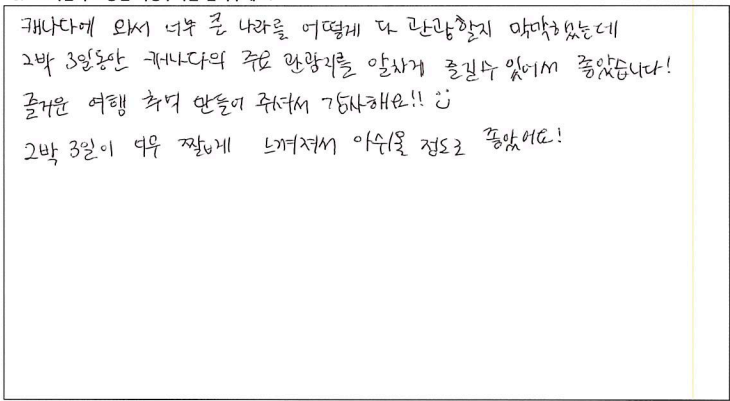 캐나다에 와서 너무 큰 나라를 어떻게 다 관광할지 막막했는데
2박 3일동안 캐나다의 주요 관광지를 알차게 즐길수 있어서 좋았습니다!
즐거운 여행 추억 만들어 주셔서 감사해요!! :)
2박 3일이 너무 짧게 느껴져서 아쉬울 정도로 좋았어요!